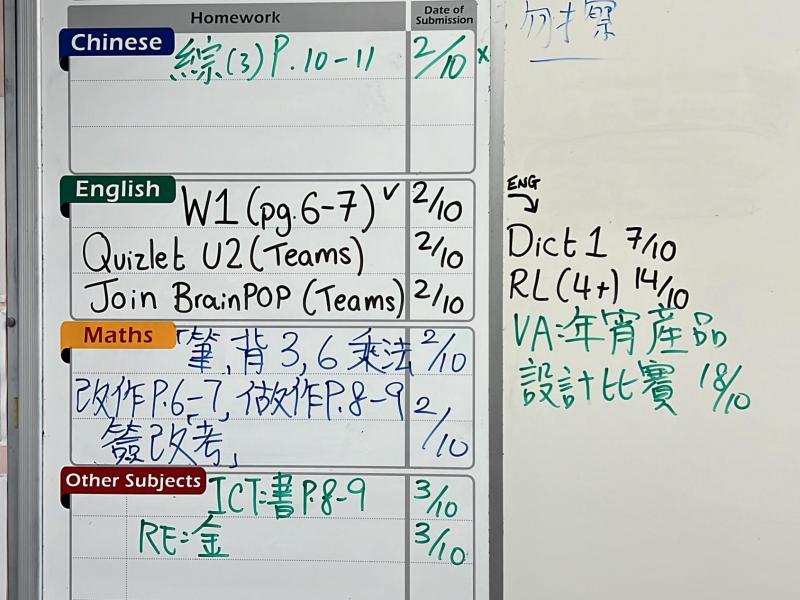 Homework
Date of Submission
Chinese
綜(3)P.10-11 2/10 x
English
W1(pg.6-7)✓ 2/10
Quizlet U2(Teams) 2/10
Join BrainPOP (Teams) 2/10
Maths
「筆,背3,6乘法 2/10
改作P.6-7,做作P.8-9 2/10
簽改「考」
Other Subjects
ICT:書P.8-9 3/10
RE:金 3/10
勿擦
ENG
Dict 1 7/10
RL(4+) 14/10
VA:年宵產品
設計比賽 18/10